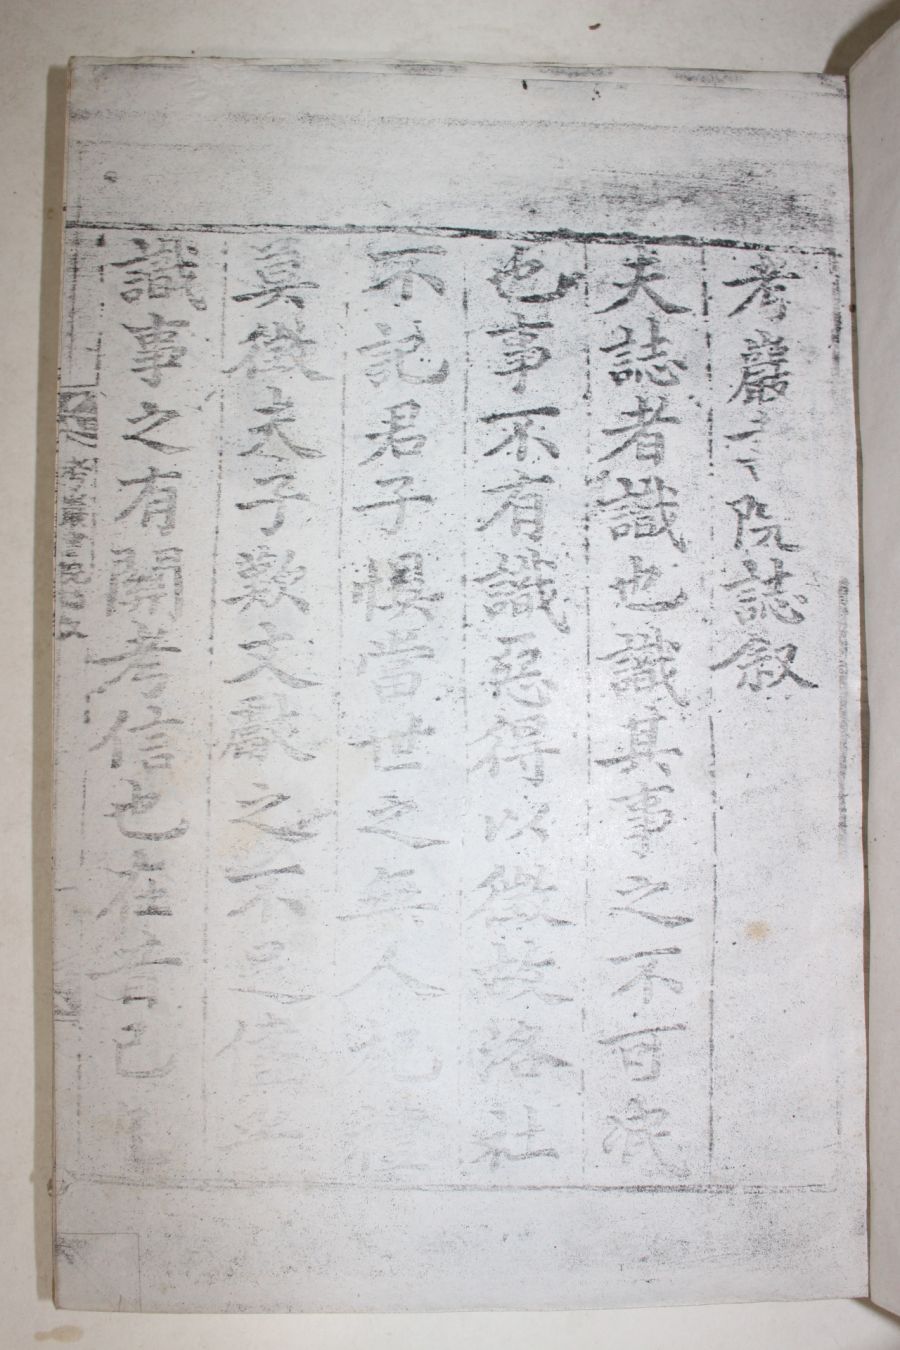 考巖院誌叙
夫誌者識也識其事之不可泯
也事不有識惡得以徵故洛社
不記君子恨當世之無人杞禮
莫徵夫子歎文獻之不足信乎
識事之有關考信也在昔己巳